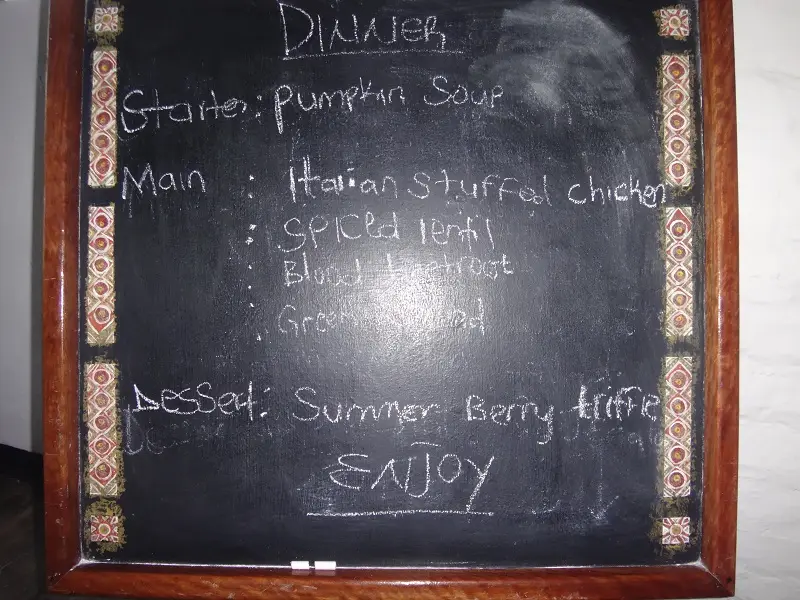 DINNER
Starter: Pumpkin Soup
Main : Italian Stuffed chicken
: Spiced lentil
: Blood beetroot
: Green
Dessert: Summer Berry triffle
ENJOY